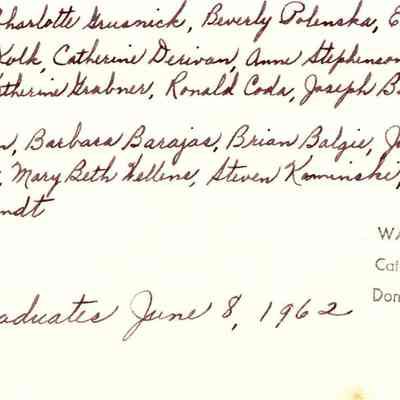 Charlotte Grusnick, Beverly Polenska, E
Kolk, Catherine Derivan, Anne Stephenson
atherine Grabner, Ronald Coda, Joseph B
n, Barbara Barajas, Brian Balgie, J
, Mary Beth Wellens, Steven Kaminski,
ndt
aduates June 8, 1962
WA
Cat
Don